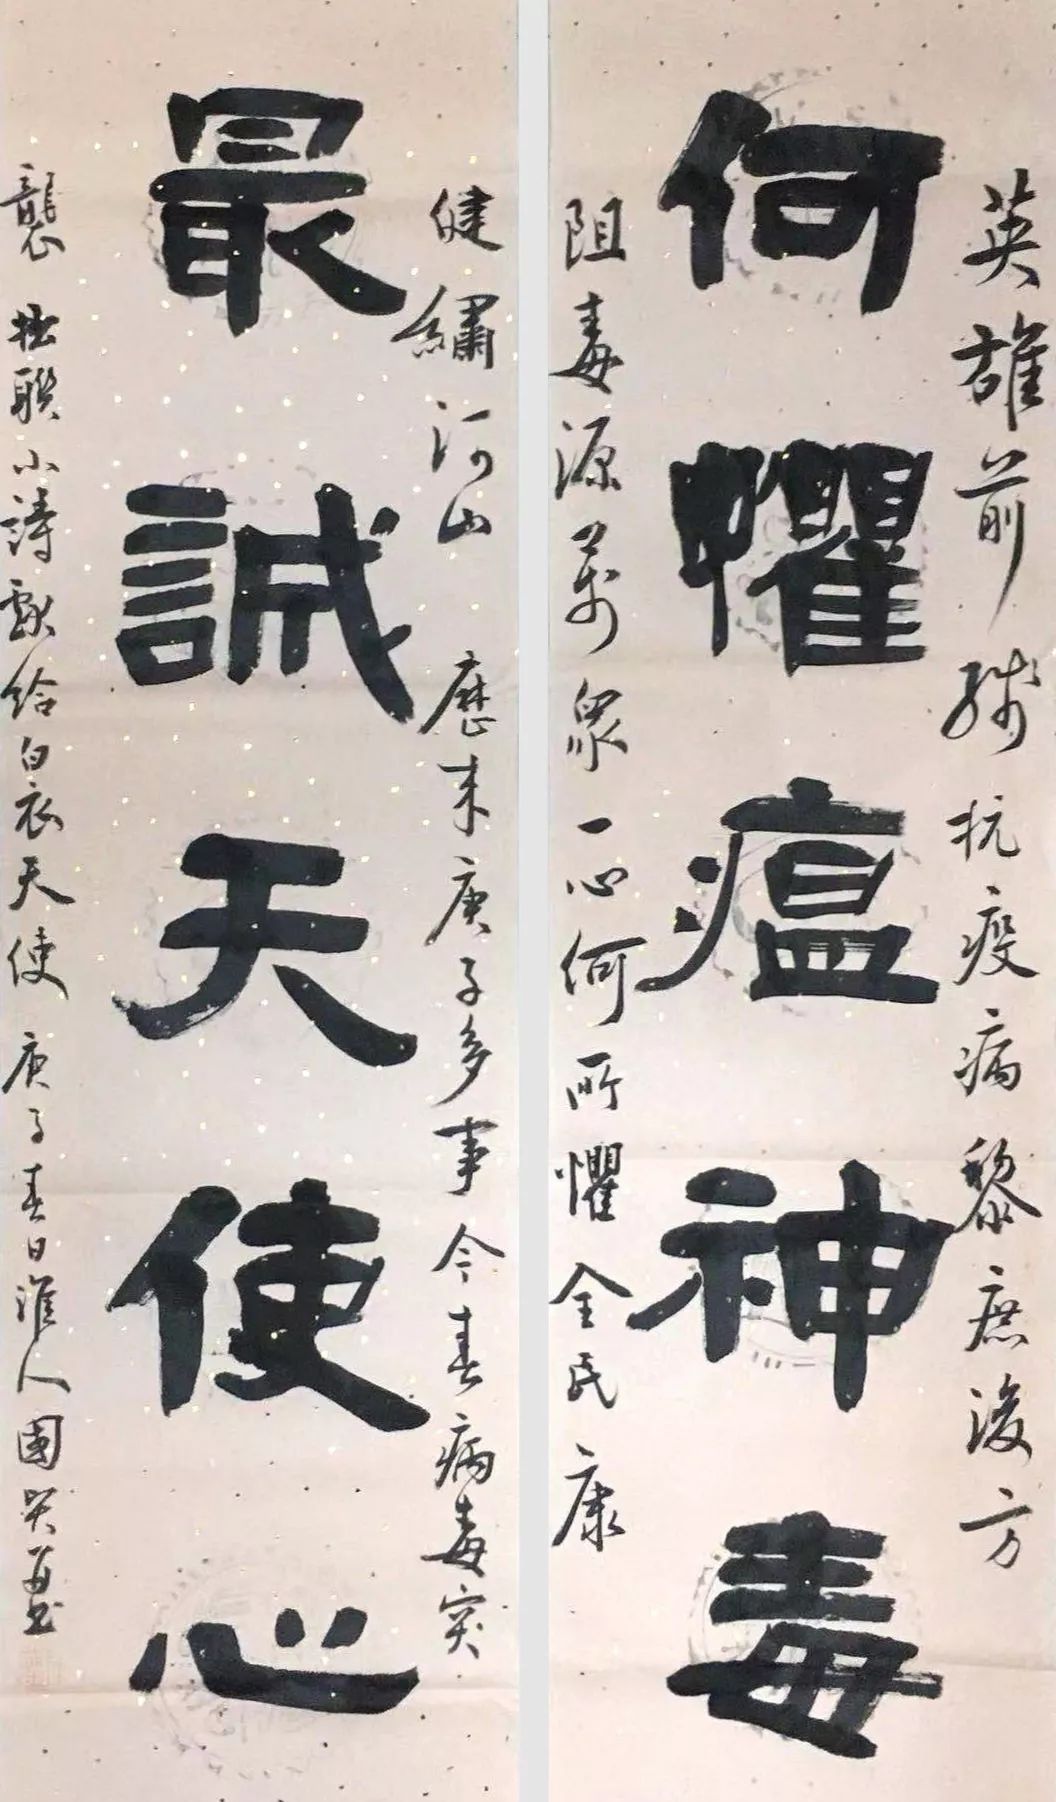 英雄前线抗疫病黎庶後方
何懼瘟神毒
阻毒源萬衆一心何所懼全民康
健繡河山 歷来庚子多事今春病毒突
最誠天使心
襲 拙聯小詩献给白衣天使 庚子春日淮人國